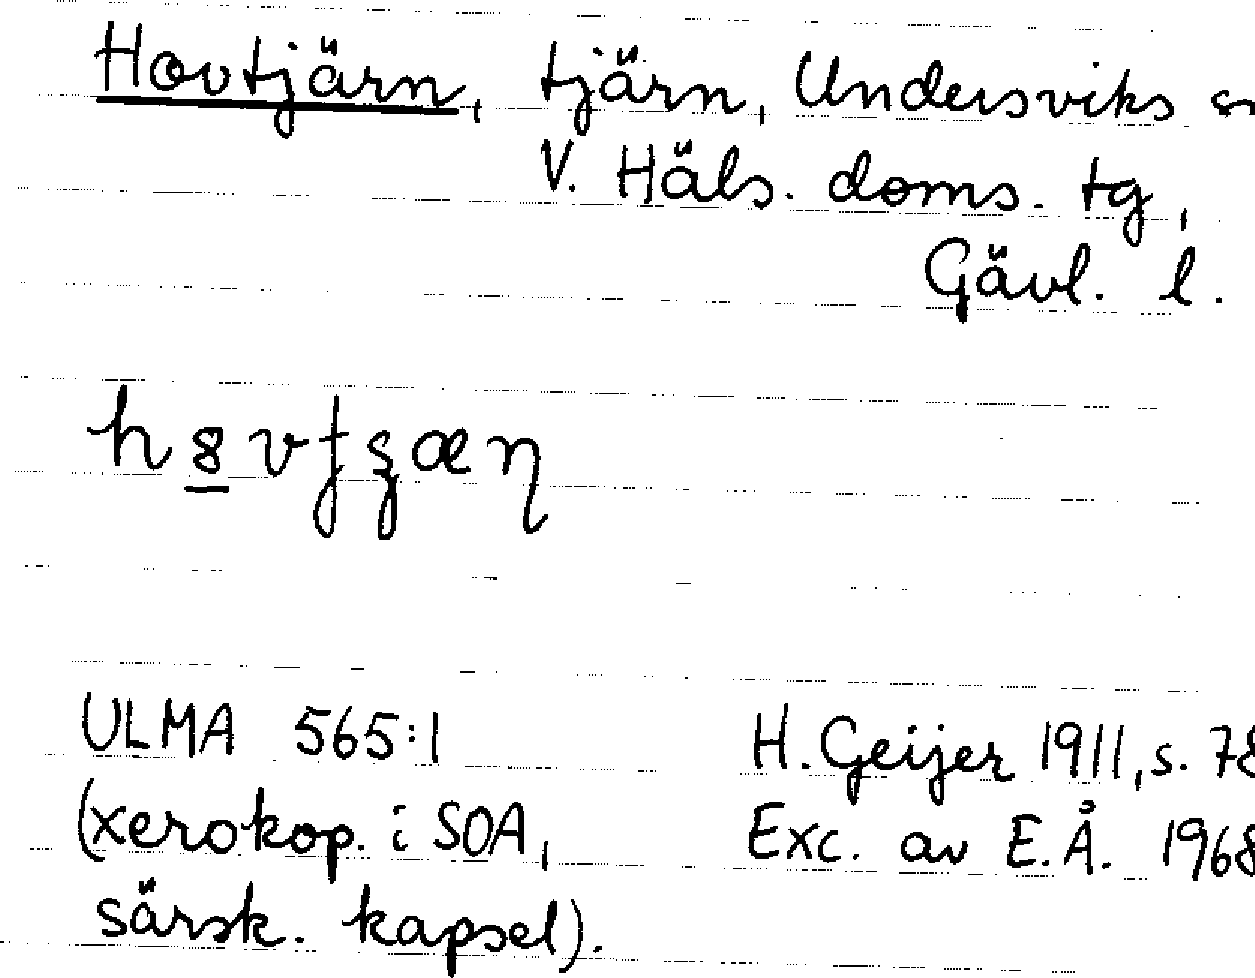 Hovtjärn, tjärn, Undersviks sn
V. Häls. doms. tg,
Gävl. l.
ULMA 565:1 H. Geijer 1911, s. 78
(xerokop. i SOA, Exc. av E.Å. 1968
särsk. kapsel).